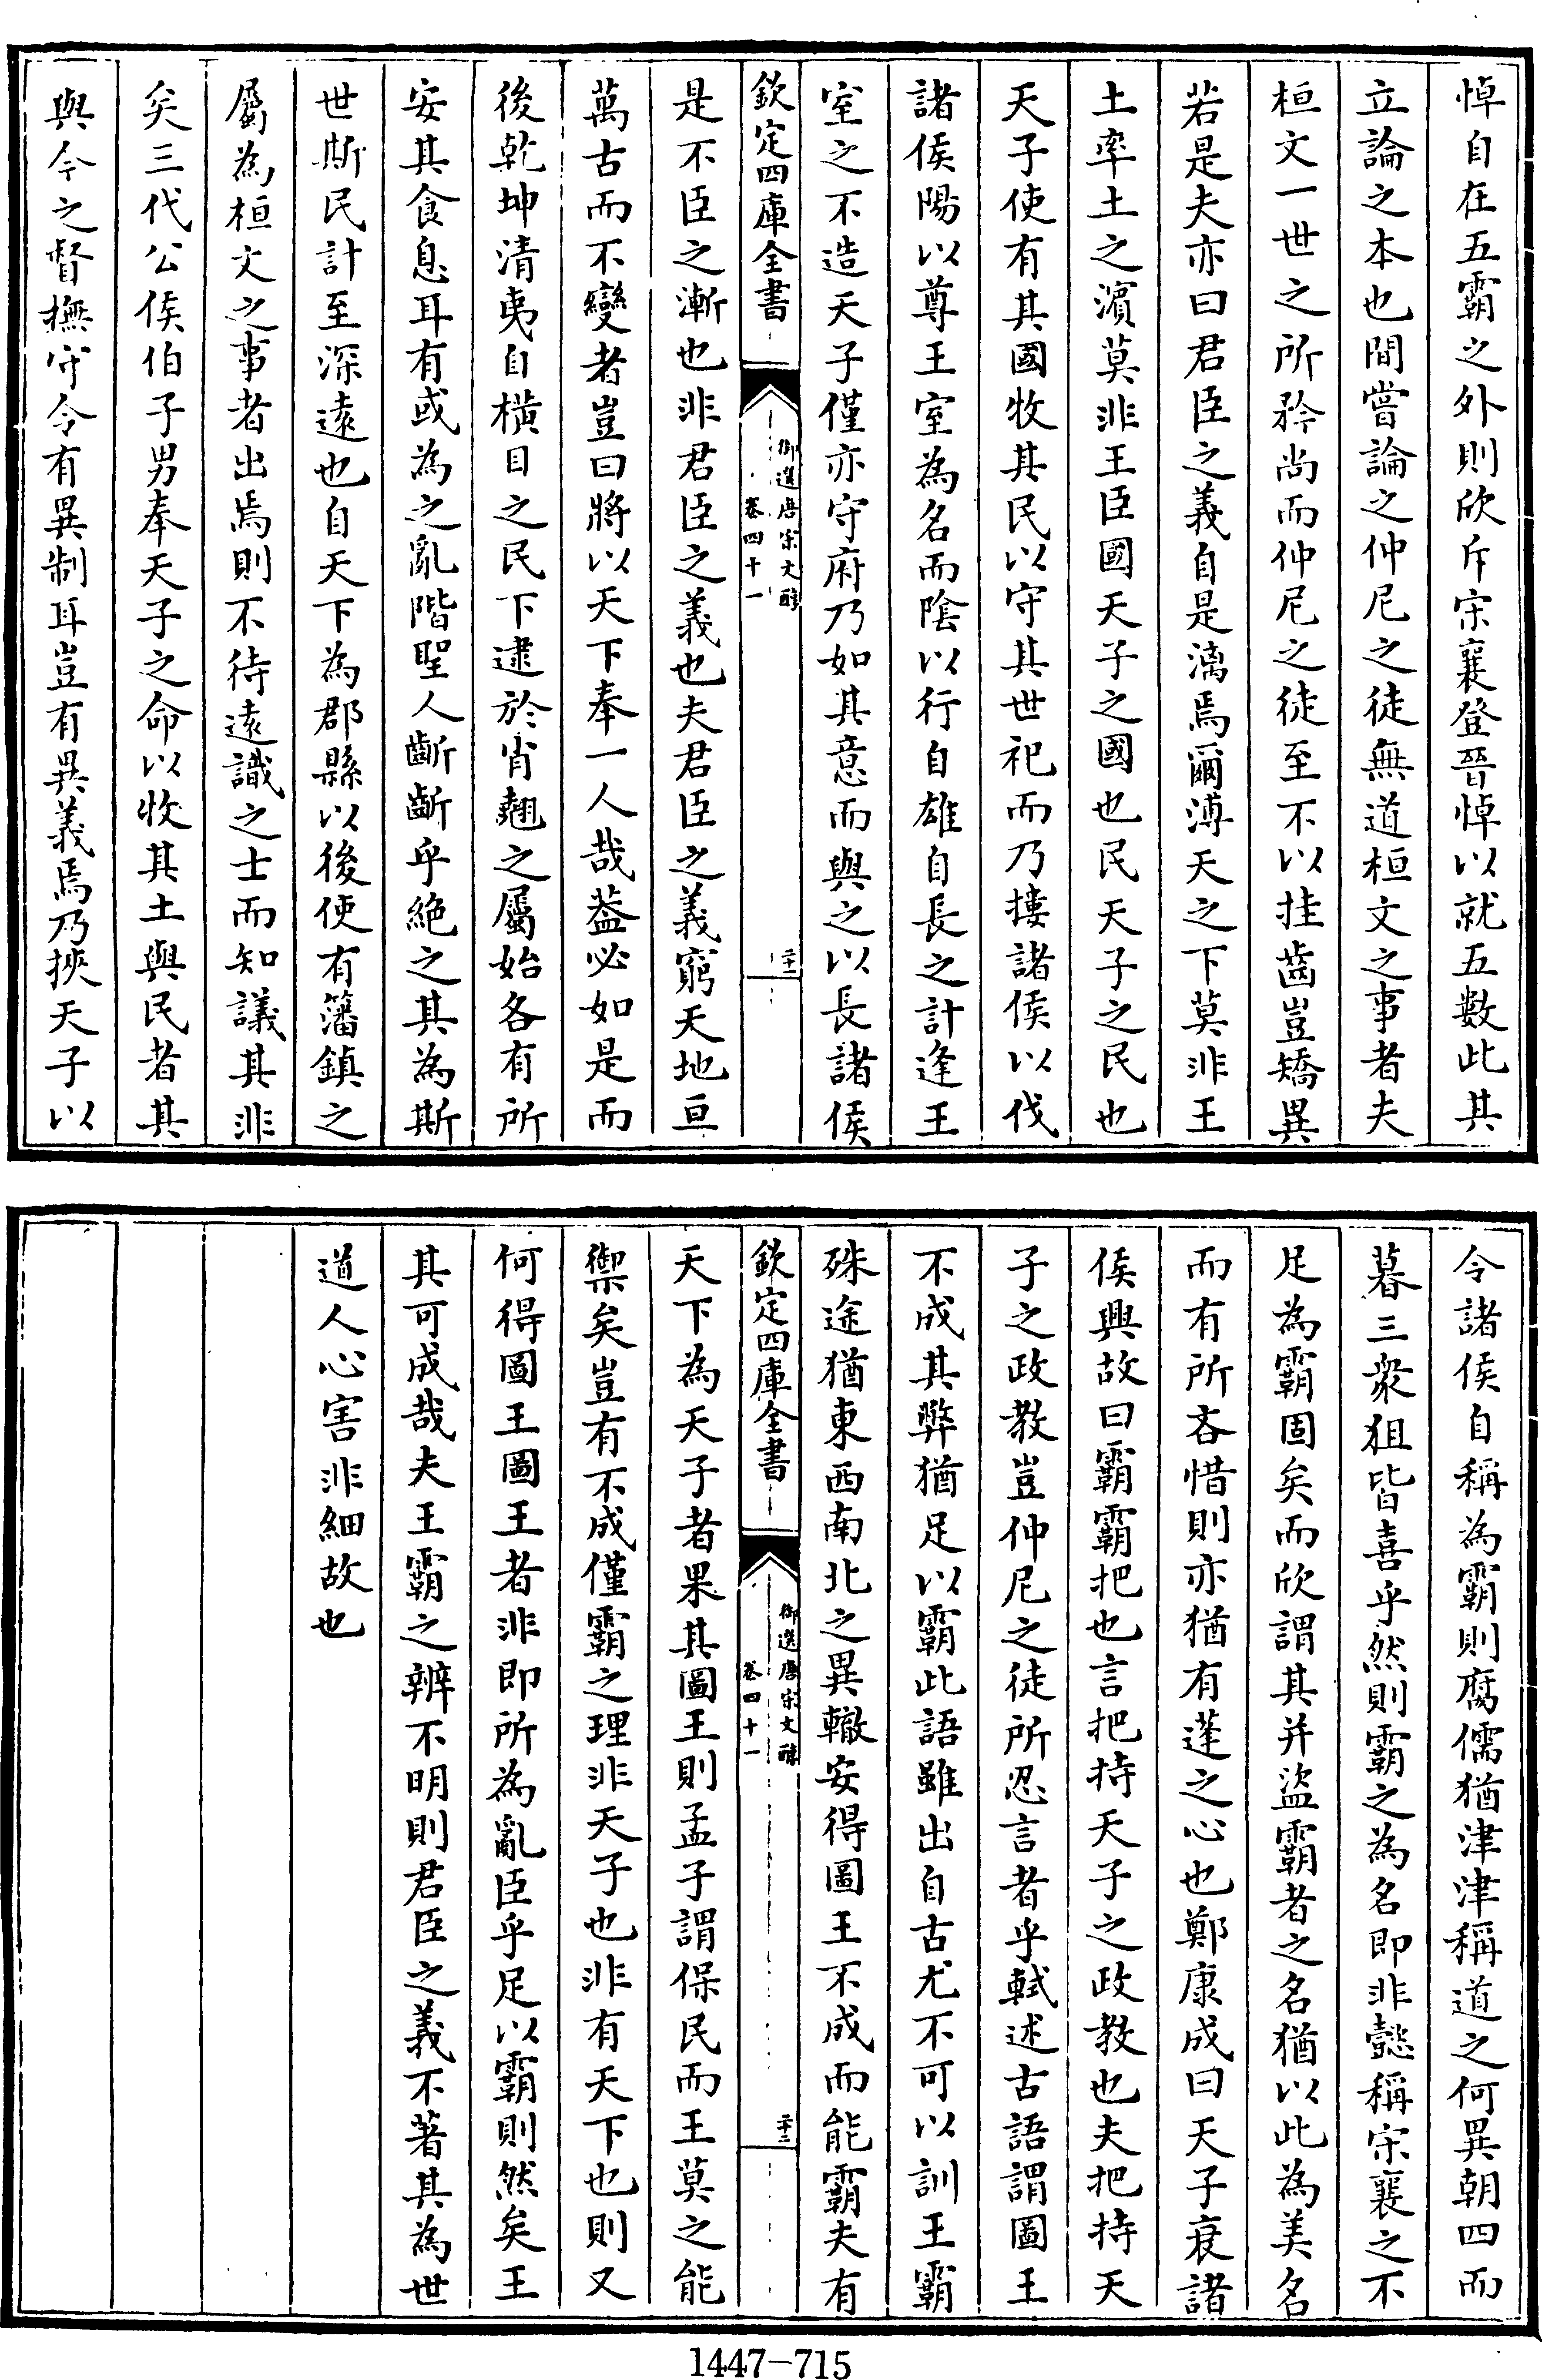 悼自在五霸之外則欣斥宋襄登晉悼以就五數此其
立論之本也間嘗論之仲尼之徒無道桓文之事者夫
桓文一世之所矜尚而仲尼之徒至不以挂齒豈矯異
若是夫亦曰君臣之義自是漓焉爾溥天之下莫非王
土率土之濱莫非王臣國天子之國也民天子之民也
天子使有其國牧其民以守其世祀而乃摟諸侯以伐
諸侯陽以尊王室為名而陰以行自雄自長之計逢王
室之不造天子僅亦守府乃如其意而與之以長諸侯
欽定四庫全書
御選唐宋文醇
卷四十一
二十二
是不臣之漸也非君臣之義也夫君臣之義窮天地亘
萬古而不變者豈曰將以天下奉一人哉葢必如是而
後乾坤清夷自橫目之民下逮於肖翹之屬始各有所
安其食息耳有或為之亂階聖人齗齗乎絶之其為斯
世斯民計至深遠也自天下為郡縣以後使有籓鎮之
屬為桓文之事者出焉則不待遠識之士而知議其非
矣三代公侯伯子男奉天子之命以收其土與民者其
與今之督撫守令有異制耳豈有異義焉乃挾天子以
令諸侯自稱為霸則腐儒猶津津稱道之何異朝四而
暮三衆狙皆喜乎然則霸之為名即非懿稱宋襄之不
足為霸固矣而欣謂其并盜霸者之名猶以此為美名
而有所吝惜則亦猶有蓬之心也鄭康成曰天子衰諸
侯興故曰霸霸把也言把持天子之政教也夫把持天
子之政教豈仲尼之徒所忍言者乎軾述古語謂圖王
不成其弊猶足以霸此語雖出自古尤不可以訓王霸
殊途猶東西南北之異轍安得圖王不成而能霸夫有
欽定四庫全書
御選唐宋文醇
卷四十一
二十三
天下為天子者果其圖王則孟子謂保民而王莫之能
禦矣豈有不成僅霸之理非天子也非有天下也則又
何得圖王圖王者非即所為亂臣乎足以霸則然矣王
其可成哉夫王霸之辨不明則君臣之義不著其為世
道人心害非細故也
1447-715